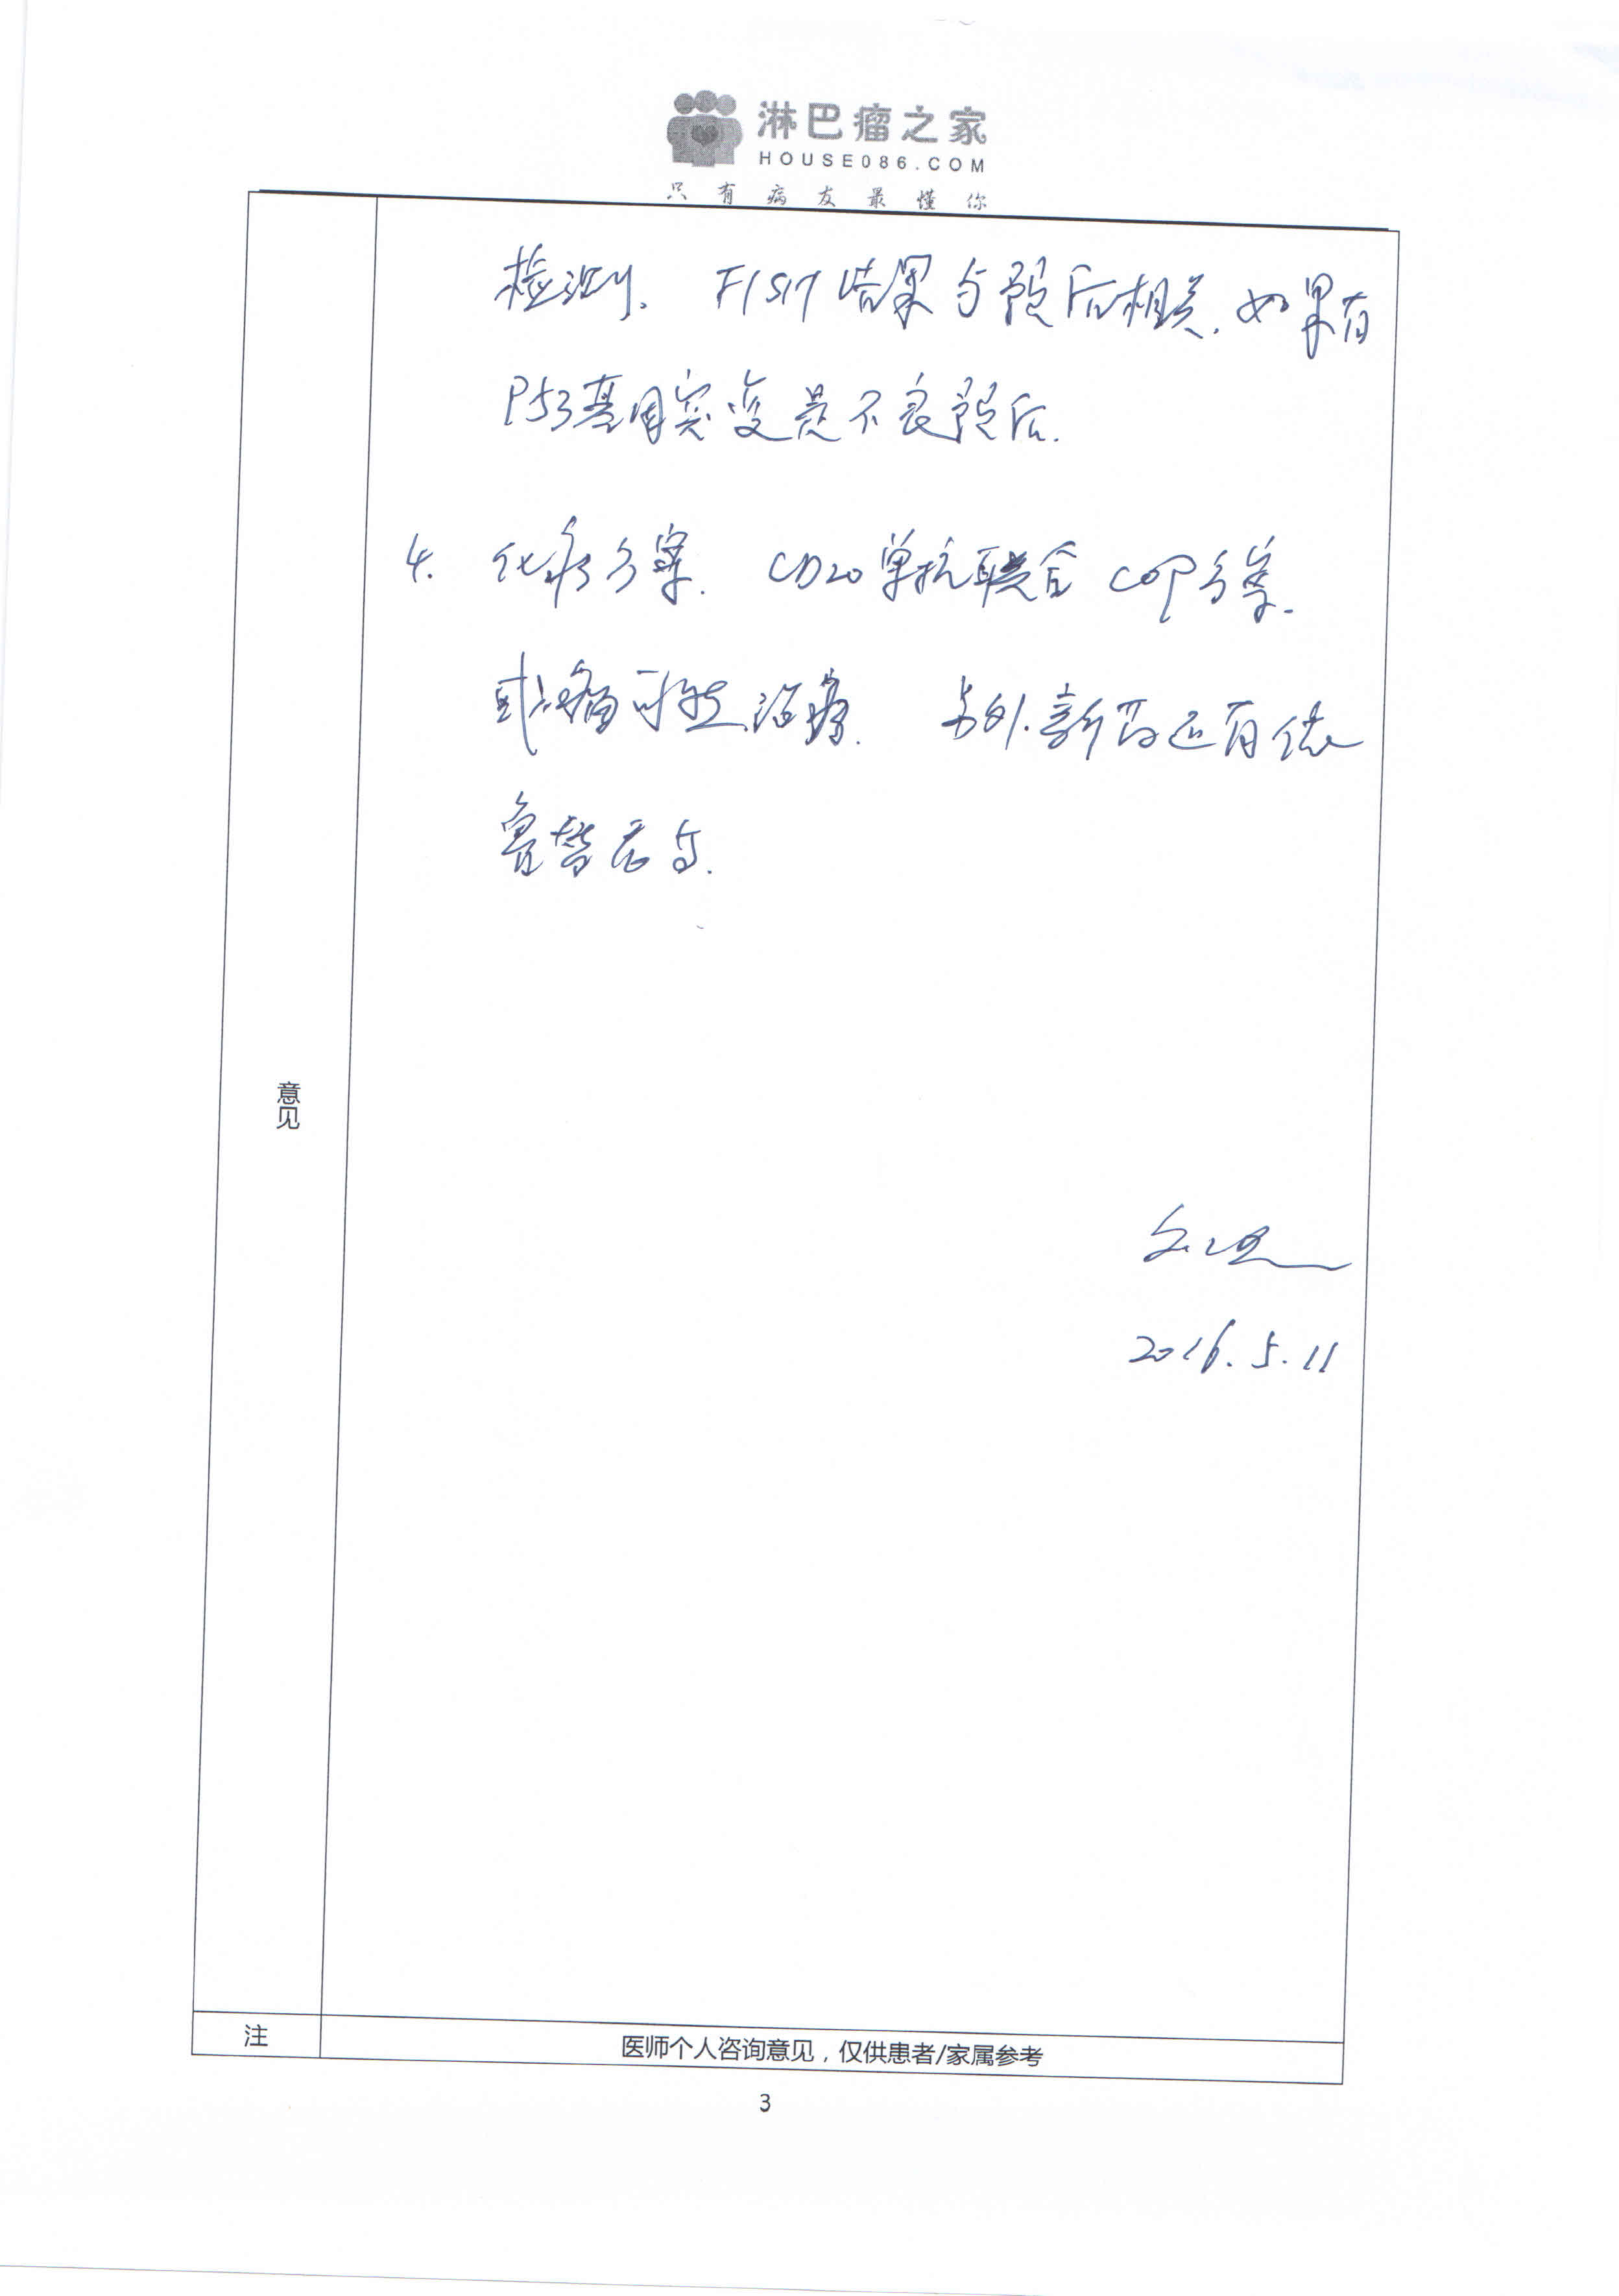 淋巴瘤之家
HOUSE086.COM
只有病友最懂你
检测. FISH结果与预后相关. 如果有
P53基因突变是不良预后.
4. 化疗方案. CD20单抗联合 COP方案.
或瘤可然治疗. 另外.新药还有依
鲁替尼等.
2016.5.11
意见
注
医师个人咨询意见，仅供患者/家属参考
3